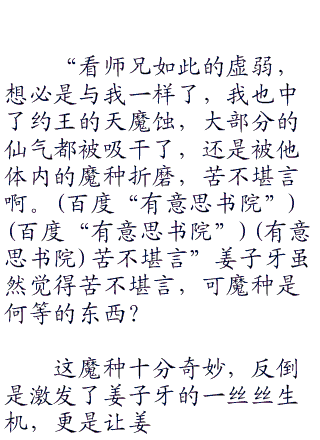 “看师兄如此的虚弱，
想必是与我一样了，我也中
了约王的天魔蚀，大部分的
仙气都被吸干了，还是被他
体内的魔种折磨，苦不堪言
啊。(百度“有意思书院”)
(百度“有意思书院”)(有意
思书院)苦不堪言”姜子牙虽
然觉得苦不堪言，可魔种是
何等的东西？
这魔种十分奇妙，反倒
是激发了姜子牙的一丝丝生
机，更是让姜